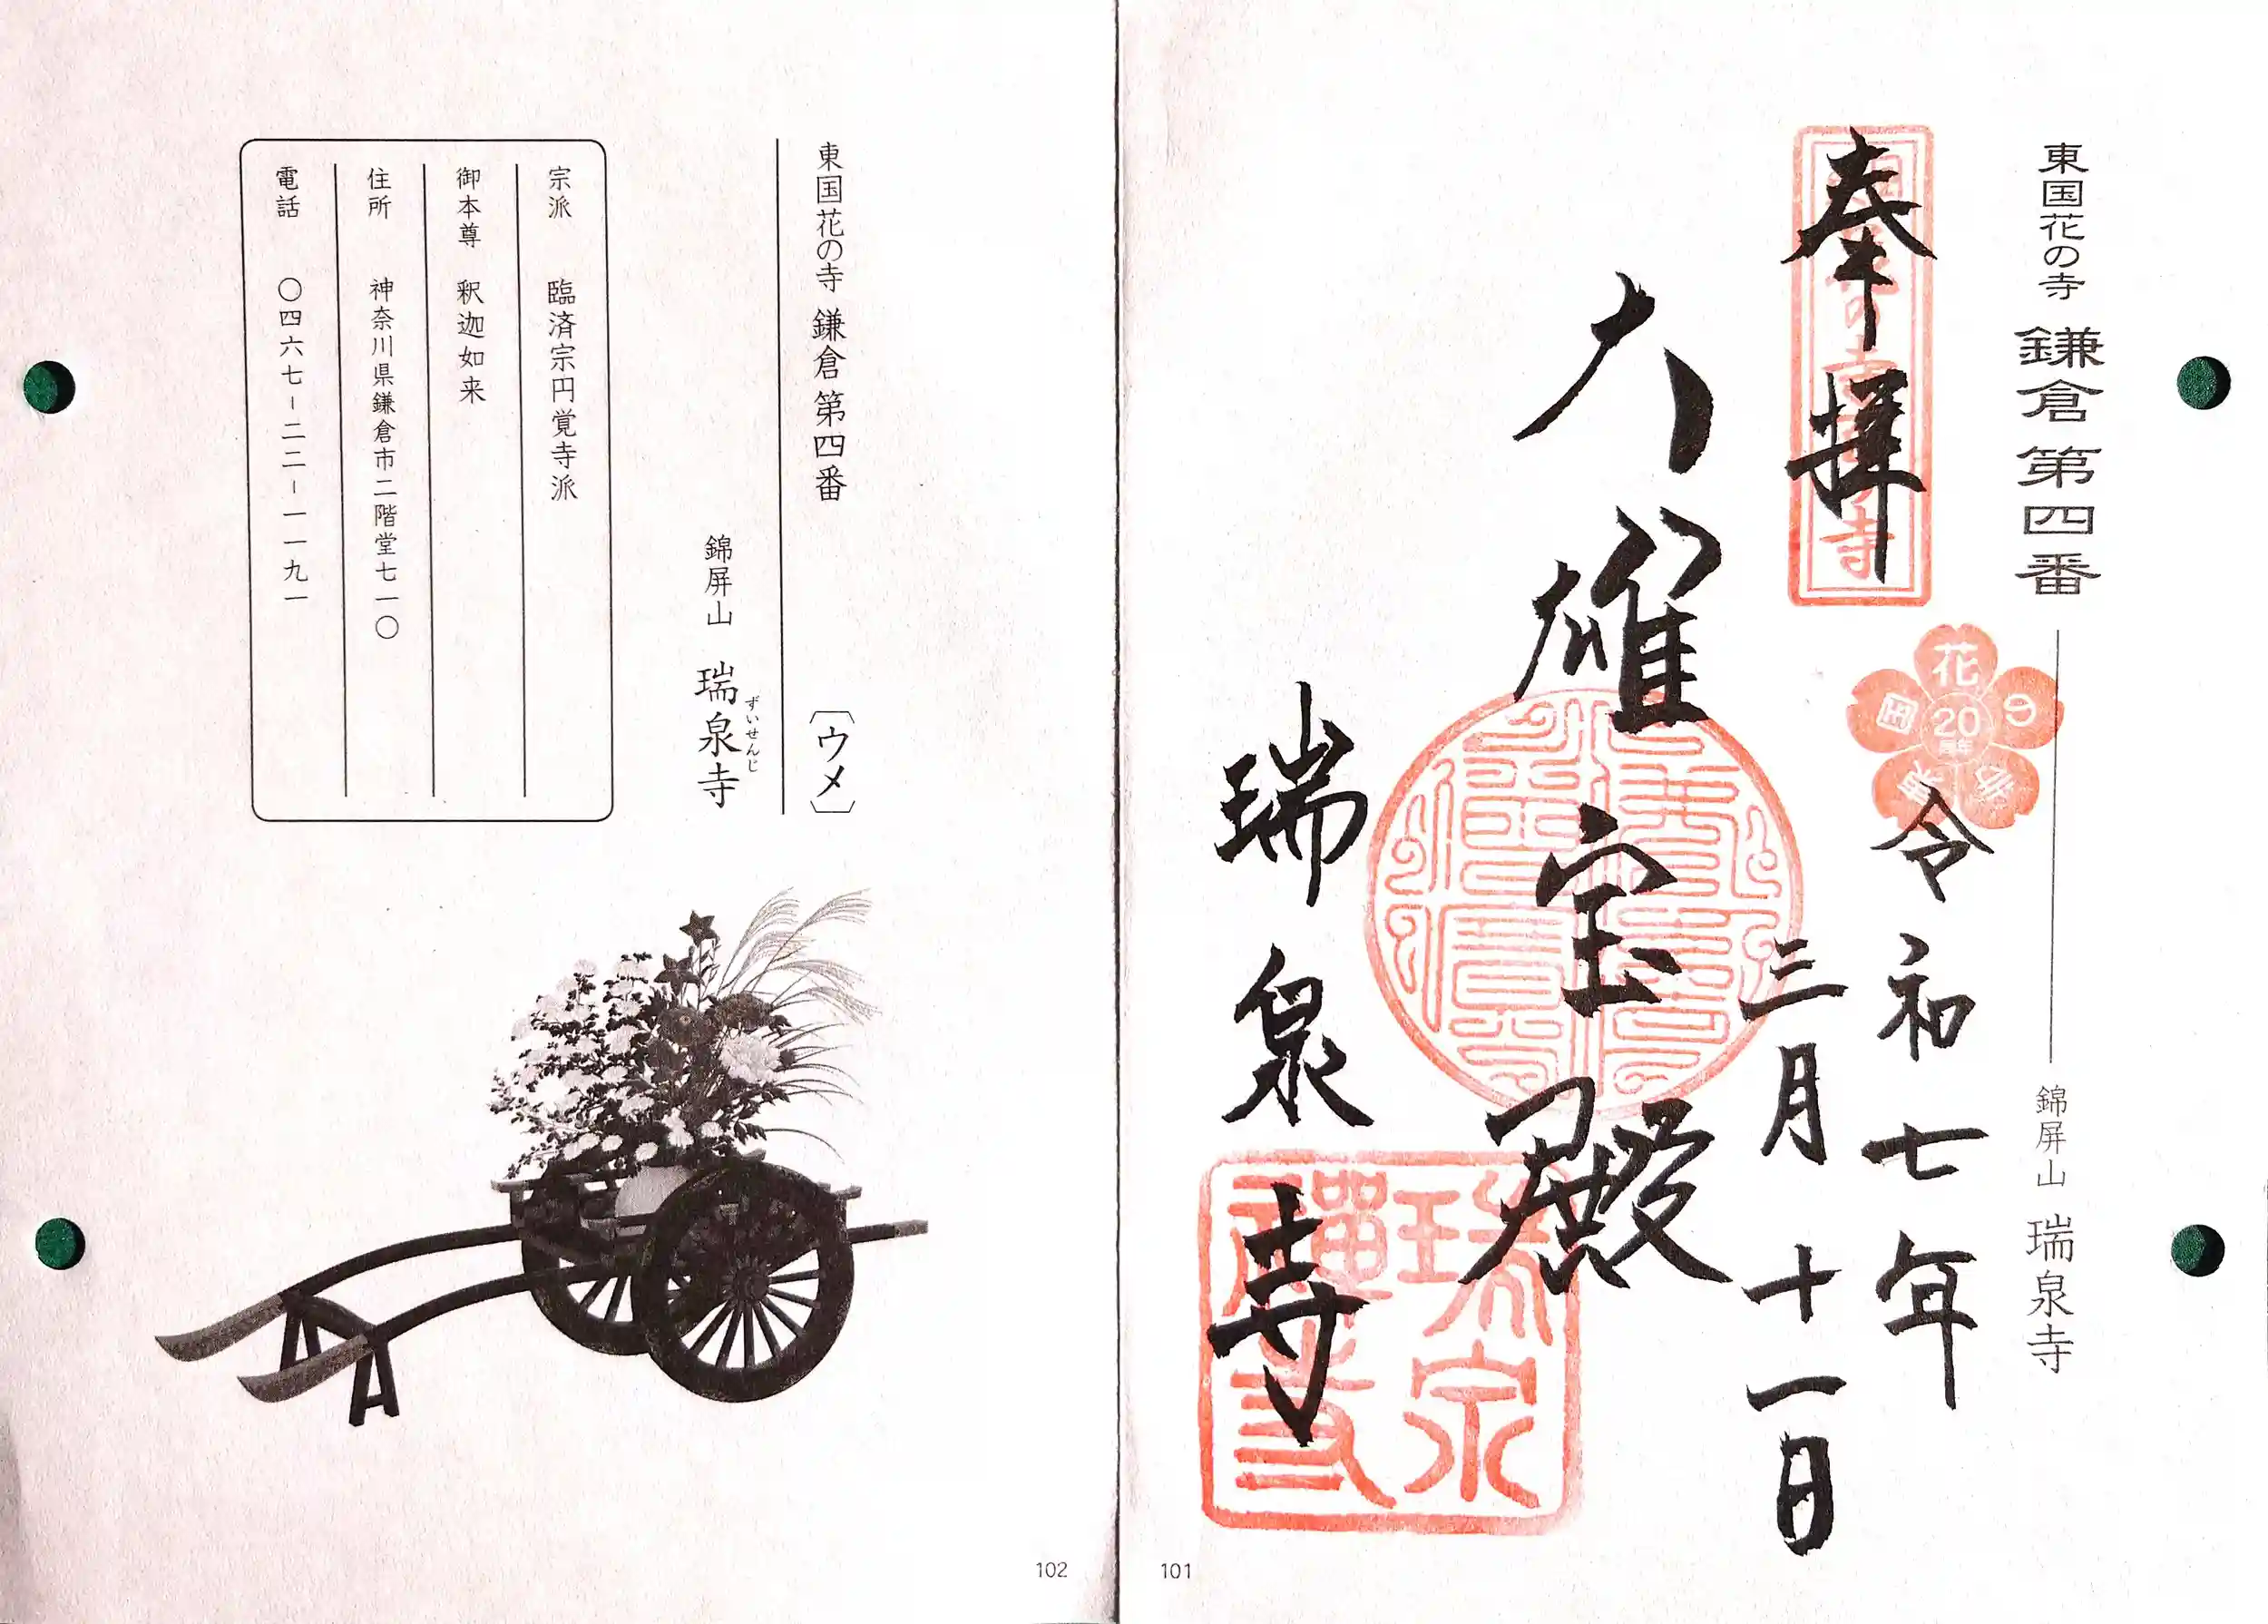 東国花の寺 鎌倉第四番
錦屏山 瑞泉寺
奉拝
花の寺
20
周年
令和七年
三月十一日
大雄宝殿
瑞泉寺
瑞泉
禅寺
101
東国花の寺 鎌倉第四番 〔ウメ〕
錦屏山 瑞泉寺
ずいせんじ
宗派 臨済宗円覚寺派
御本尊 釈迦如来
住所 神奈川県鎌倉市二階堂七一〇
電話 〇四六七-二二-一一九一
102